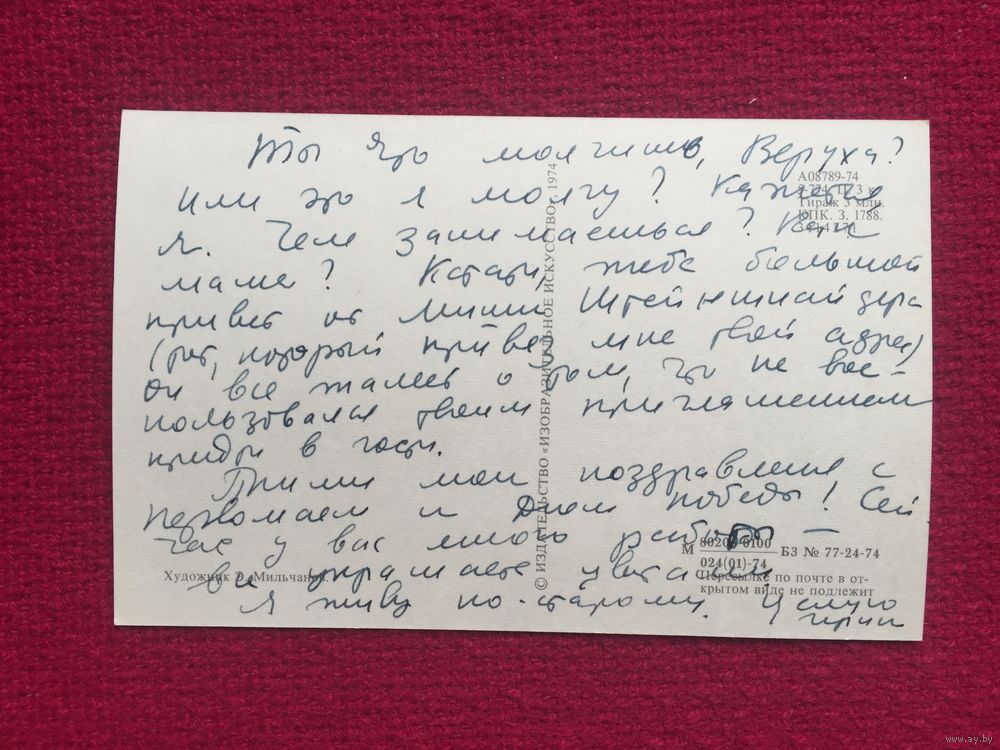 Ты что молчишь, Веруха?
или это я молчу? Кажется
я. Чем занимаешься? Как
мама? Кстати, тебе большой
привет от Миши Штейншнайдера
(тот, который привез мне твой адрес)
Он все жалеет о том, что не вос-
пользовался твоим приглашением
придти в гости.
Прими мои поздравления с
Первомаем и Днем победы! Сей
час у вас много работы –
вы украшаете цветами
Я живу по-старому. Целую
А08789-74
Тираж 3 млн.
КПК. З. 1788.
© ИЗДАТЕЛЬСТВО «ИЗОБРАЗИТЕЛЬНОЕ ИСКУССТВО», 1974
М 80200-0100 БЗ № 77-24-74
024(01)-74
Художник Мильчанов
Пересылке по почте в от-
крытом виде не подлежит
www.ay.by